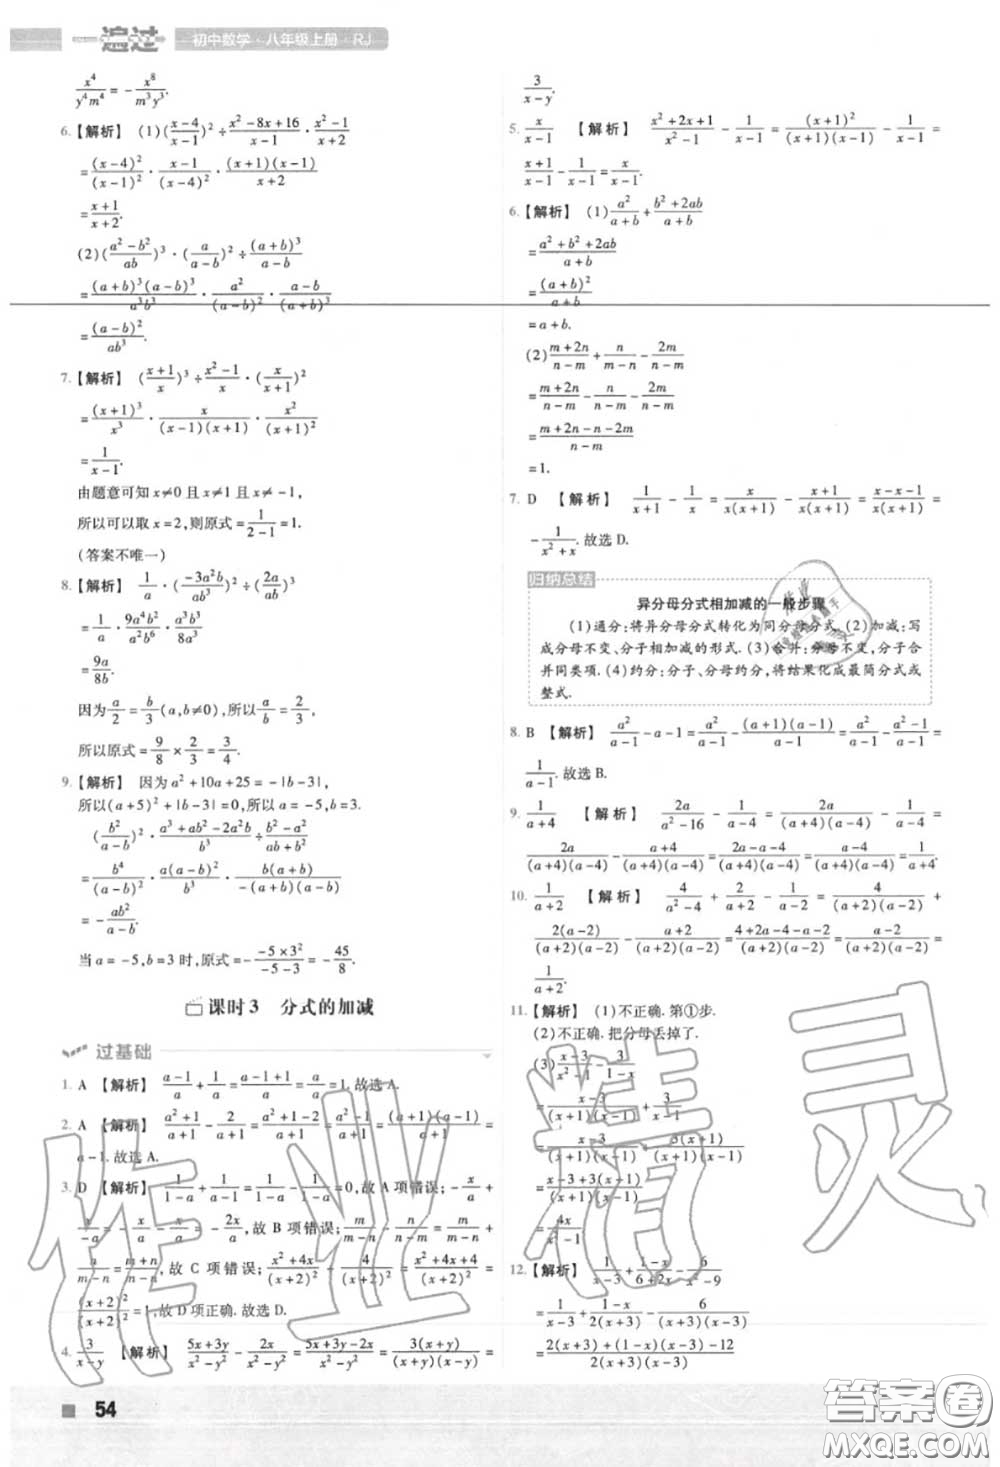 一遍过 初中数学·八年级上册·RJ
x⁴/(y⁴m⁴) = -x⁸/(m³y³).
6.【解析】 (1)((x-4)/(x-1))²÷(x²-8x+16)/(x-1)·(x²-1)/(x+2)
=(x-4)²/(x-1)²·(x-1)/(x-4)²·(x+1)(x-1)/(x+2)
=(x+1)/(x+2).
(2)((a²-b²)/ab)³·(a/(a-b))²÷(a+b)³/(a-b)
=(a+b)³(a-b)³/(a³b³)·a²/(a-b)²·(a-b)/(a+b)³
=(a-b)²/(ab³).
7.【解析】 ((x+1)/x)³÷(x²-1)/x·(x/(x+1))²
=(x+1)³/x³·x/((x-1)(x+1))·x²/(x+1)²
=1/(x-1).
由题意可知 x≠0 且 x≠1 且 x≠-1,
所以可以取 x=2,则原式=1/(2-1)=1.
(答案不唯一)
8.【解析】 1/a·(-3a²b/(2a³b))²÷(2a/(ab))³
=1/a·9a⁴b²/(4a⁶b²)·a³b³/(8a³)
=9a/(8b).
因为a/2=b/3(a,b≠0),所以a/b=2/3,
所以原式=9/8×2/3=3/4.
9.【解析】 因为 a²+10a+25=-|b-3|,
所以(a+5)²+|b-3|=0,所以 a=-5,b=3.
(b²/(a-b))²·(a³+ab²-2a²b)/b³÷(b²-a²)/(ab+b²)
=b⁴/(a-b)²·a(a-b)²/b³·b(a+b)/(-(a+b)(a-b))
=-ab²/(a-b).
当 a=-5,b=3 时,原式=-(-5×3²)/(-5-3)=-45/8.
课时3 分式的加减
过基础
1. A 【解析】 (a-1)/a+1/a=(a-1+1)/a=a/a=1.故选 A.
2. A 【解析】 (a²+1)/(a+1)-2/(a+1)=(a²-1)/(a+1)=(a+1)(a-1)/(a+1)=
a-1.故选 A.
3. D 【解析】 1/(1-a)+1/(a-1)=1/(1-a)-1/(1-a)=0,故 A 项错误;-x/a+
x/(-a)=-x/a-x/a=-2x/a,故 B 项错误;m/(m-n)-n/(n-m)=m/(m-n)+
n/(m-n)=(m+n)/(m-n),故 C 项错误;(x²+4x)/(x+2)²+4/(x+2)²=(x²+4x+4)/(x+2)²=
(x+2)²/(x+2)²=1,故 D 项正确.故选 D.
4. 3/(x-y) 【解析】 (5x+3y)/(x²-y²)-2x/(x²-y²)=(5x+3y-2x)/(x²-y²)=3(x+y)/((x+y)(x-y))=
3/(x-y).
5. x/(x-1) 【解析】 (x²+2x+1)/(x²-1)-1/(x-1)=(x+1)²/((x+1)(x-1))-1/(x-1)=
(x+1)/(x-1)-1/(x-1)=x/(x-1).
6.【解析】 (1)a²/(a+b)+(b²+2ab)/(a+b)
=(a²+b²+2ab)/(a+b)
=(a+b)²/(a+b)
=a+b.
(2)(m+2n)/(n-m)+n/(m-n)-2m/(n-m)
=(m+2n)/(n-m)-n/(n-m)-2m/(n-m)
=(m+2n-n-2m)/(n-m)
=1.
7. D 【解析】 1/(x+1)-1/x=x/(x(x+1))-(x+1)/(x(x+1))=(x-x-1)/(x(x+1))=
-1/(x²+x).故选 D.
归纳总结
异分母分式相加减的一般步骤
(1)通分:将异分母分式转化为同分母分式.(2)加减:写
成分母不变、分子相加减的形式.(3)合并:分子去括号、合
并同类项.(4)约分:分子、分母约分,将结果化成最简分式或
整式.
8. B 【解析】 a²/(a-1)-a-1=a²/(a-1)-(a+1)(a-1)/(a-1)=a²/(a-1)-(a²-1)/(a-1)=
1/(a-1).故选 B.
9. 1/(a+4) 【解析】 2a/(a²-16)-1/(a-4)=2a/((a+4)(a-4))-1/(a-4)=
2a/((a+4)(a-4))-(a+4)/((a+4)(a-4))=(2a-a-4)/((a+4)(a-4))=(a-4)/((a+4)(a-4))=1/(a+4).
10. 1/(a+2) 【解析】 4/(a²-4)+2/(a+2)-1/(a-2)=4/((a+2)(a-2))+
2(a-2)/((a+2)(a-2))-(a+2)/((a+2)(a-2))=(4+2a-4-a-2)/((a+2)(a-2))=(a-2)/((a+2)(a-2))=
1/(a+2).
11.【解析】 (1)不正确.第①步.
(2)不正确.把分母丢掉了.
(3)(x-3)/(x²-1)-3/(1-x)
=(x-3)/((x+1)(x-1))+3/(x-1)
=(x-3)/((x+1)(x-1))+3(x+1)/((x+1)(x-1))
=(x-3+3(x+1))/((x+1)(x-1))
=4x/(x²-1).
12.【解析】 1/(x-3)+(1-x)/(6+2x)-6/(x²-9)
=1/(x-3)+(1-x)/(2(x+3))-6/((x+3)(x-3))
=(2(x+3)+(1-x)(x-3)-12)/(2(x+3)(x-3))
54
作业精灵
答案圈
MXQE.COM